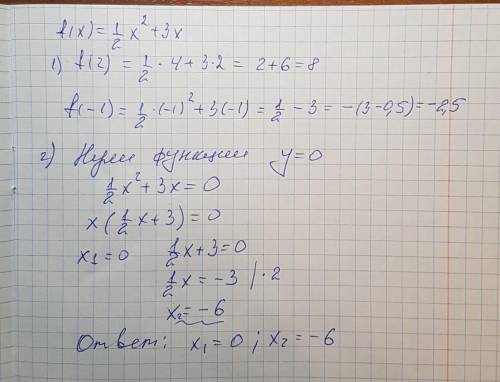 f(x) = 1/2 x² + 3x
1) f(2) = 1/2 · 4 + 3·2 = 2+6 = 8
f(-1) = 1/2 · (-1)² + 3(-1) = 1/2 - 3 = -(3-0,5) = -2,5
2) Нули функции y=0
1/2 x² + 3x = 0
x(1/2 x + 3) = 0
x1 = 0 1/2 x + 3 = 0
1/2 x = -3 | · 2
x2 = -6
Ответ: x1 = 0 ; x2 = -6